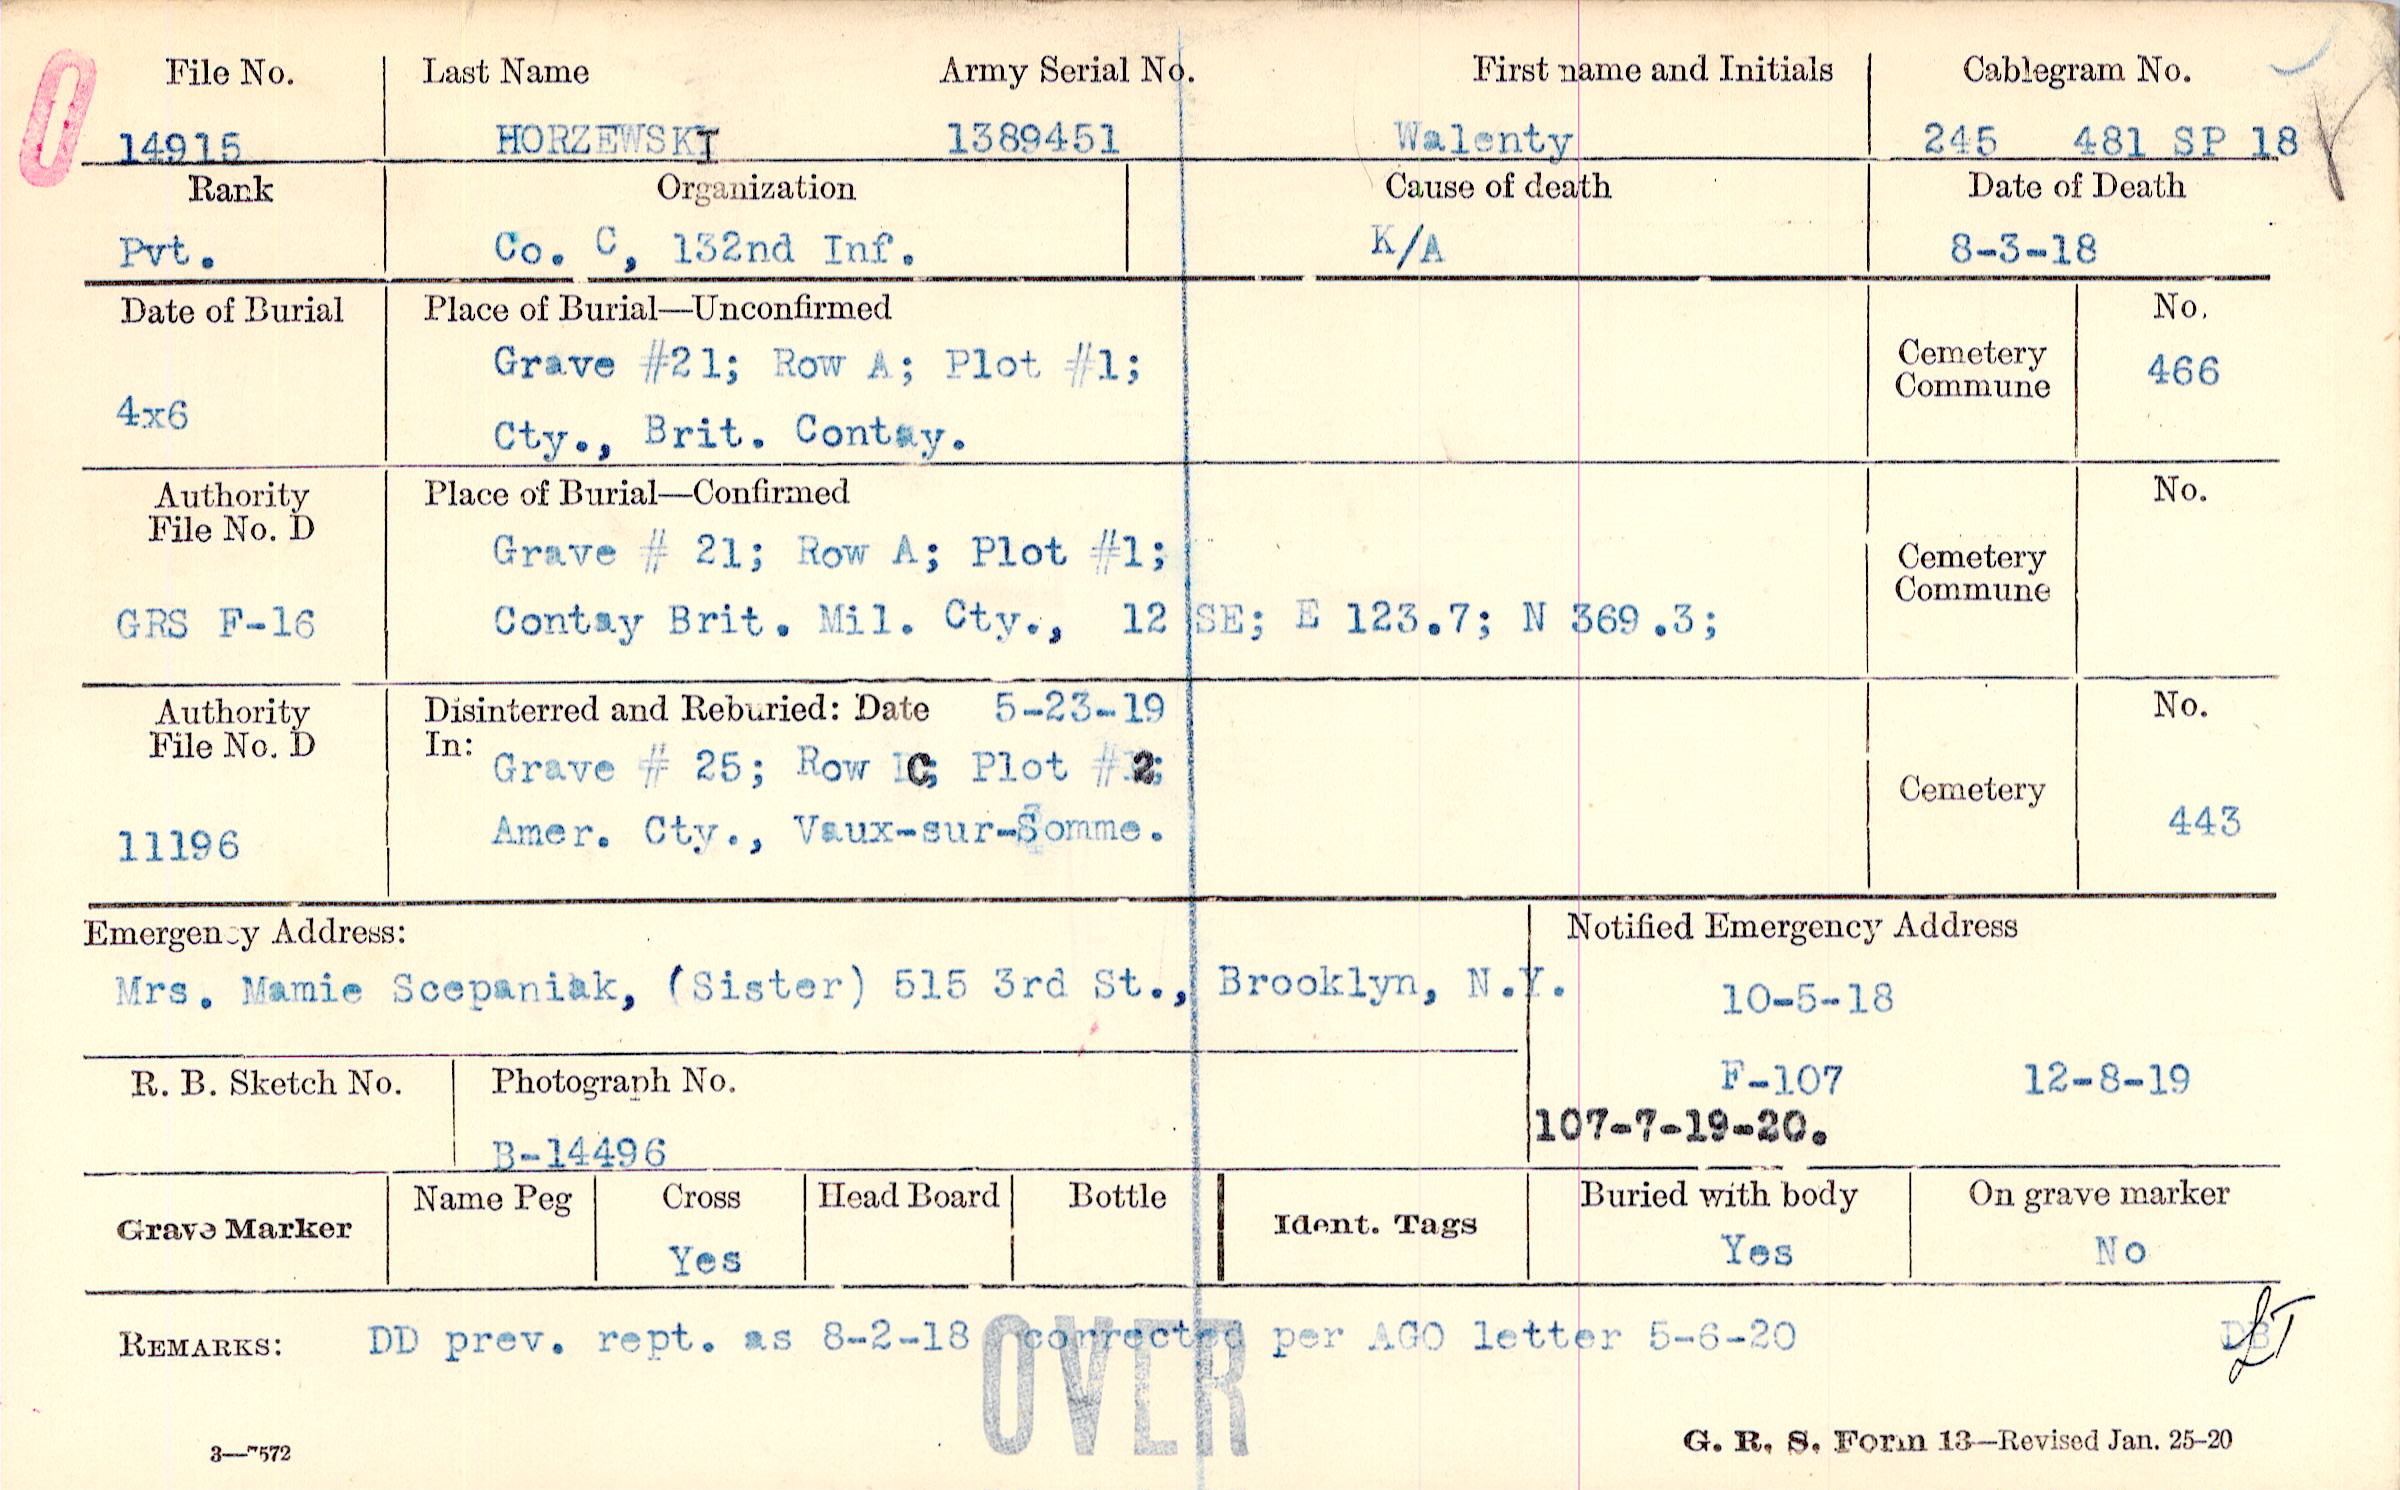 File No. Last Name Army Serial No. First name and Initials Cablegram No.
14915 HORZEWSKI 1389451 Walenty 245 481 SP 18
Rank Organization Cause of death Date of Death
Pvt. Co. C, 132nd Inf. K/A 8-3-18
Date of Burial Place of Burial—Unconfirmed No.
Grave #21; Row A; Plot #1; Cemetery Commune 466
4x6 Cty., Brit. Contay.
Authority File No. D Place of Burial—Confirmed No.
Grave # 21; Row A; Plot #1; Cemetery Commune
GRS F-16 Contay Brit. Mil. Cty., 12 SE; E 123.7; N 369.3;
Authority File No. D Disinterred and Reburied: Date 5-23-19 No.
In: Grave # 25; Row C; Plot #2; Cemetery
11196 Amer. Cty., Vaux-sur-Somme. 443
Emergency Address: Notified Emergency Address
Mrs. Mamie Scepaniak, (Sister) 515 3rd St., Brooklyn, N.Y. 10-5-18
R. B. Sketch No. Photograph No. F-107 12-8-19
107-7-19-20.
B-14496
Grave Marker Name Peg Cross Head Board Bottle Ident. Tags Buried with body On grave marker
Yes Yes No
REMARKS: DD prev. rept. as 8-2-18 corrected per AGO letter 5-6-20 DB
OVER
3—7572 G. R. S. Form 13—Revised Jan. 25-20